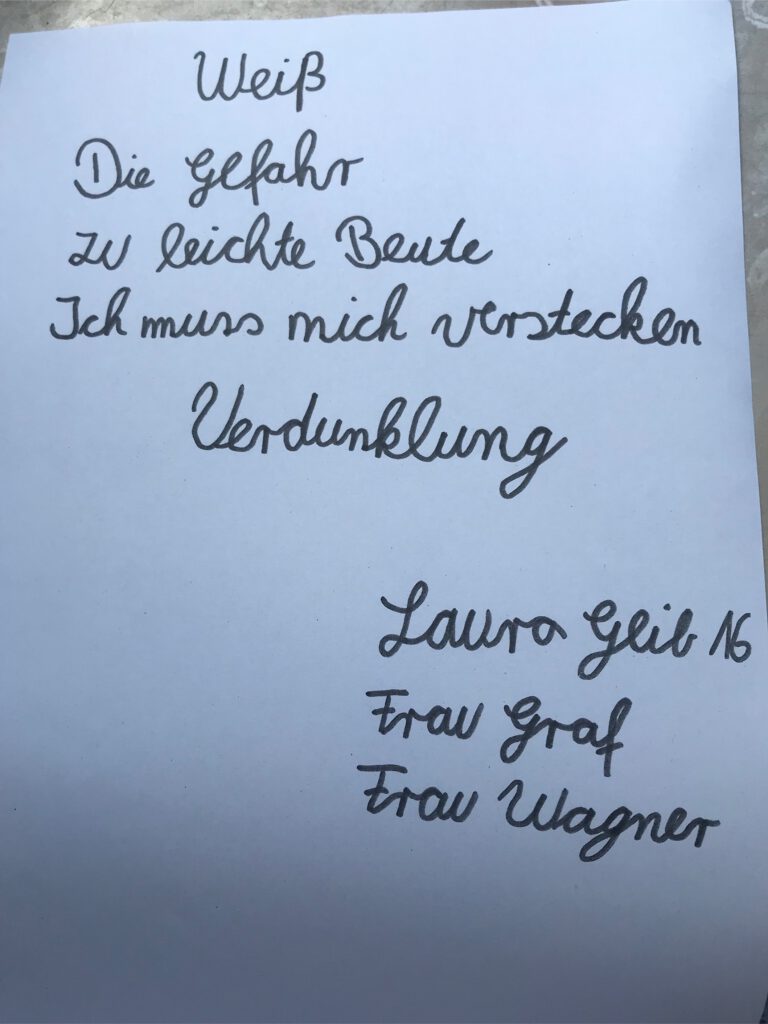 Weiß
Die Gefahr
zu leichte Beute
Ich muss mich verstecken
Verdunklung
Laura Geib 16
Frau Graf
Frau Wagner